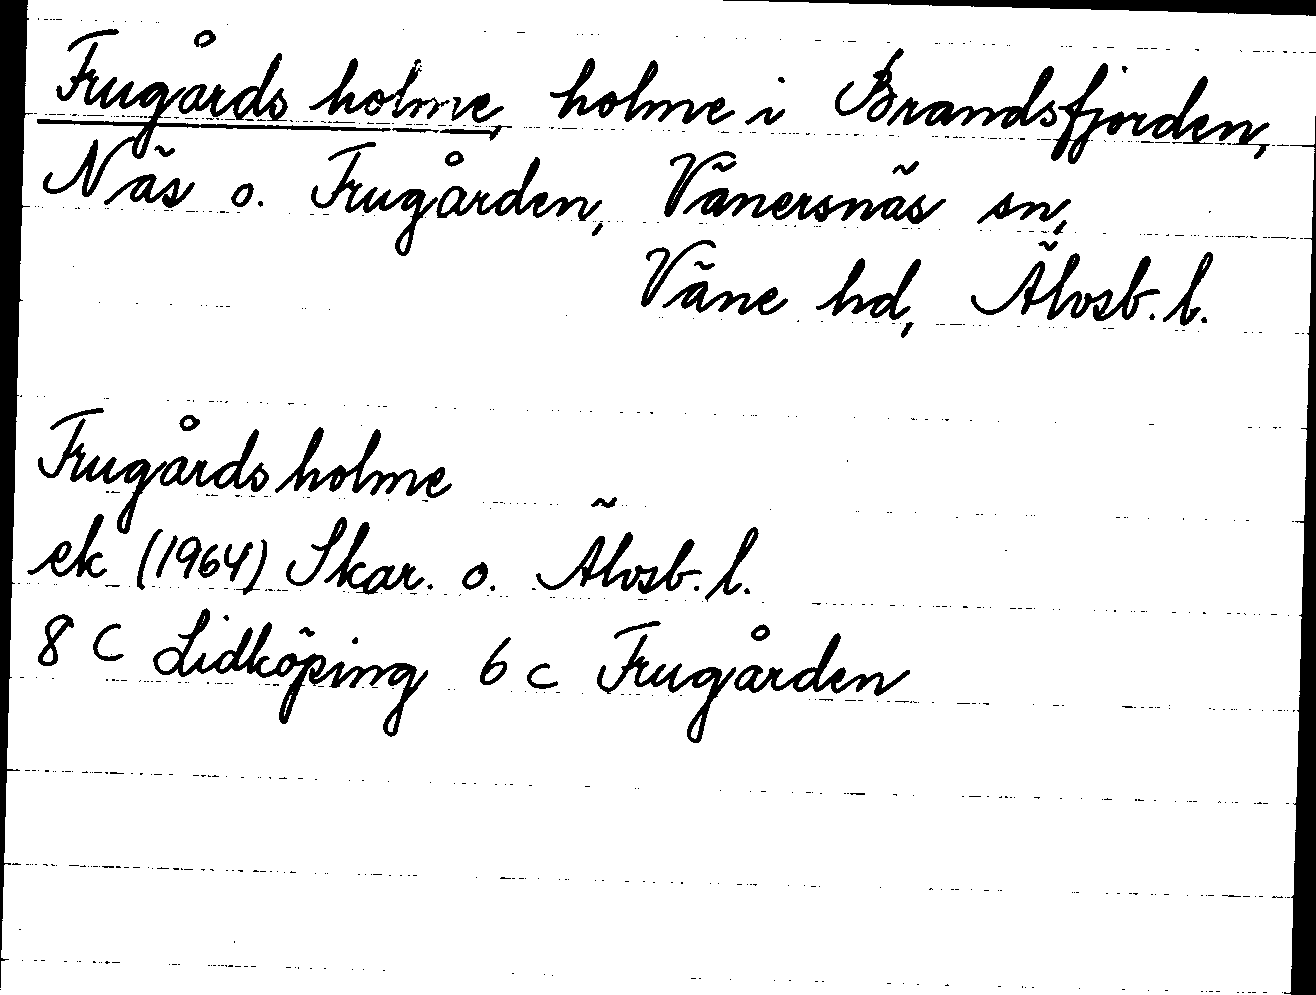 Frugårds holme, holme i Brandsfjorden,
Näs o. Frugården, Vänersnäs sn,
Väne hd, Älvsb. l.
Frugårds holme
ek (1964) Skar. o. Älvsb. l.
8 C Lidköping 6 c Frugården